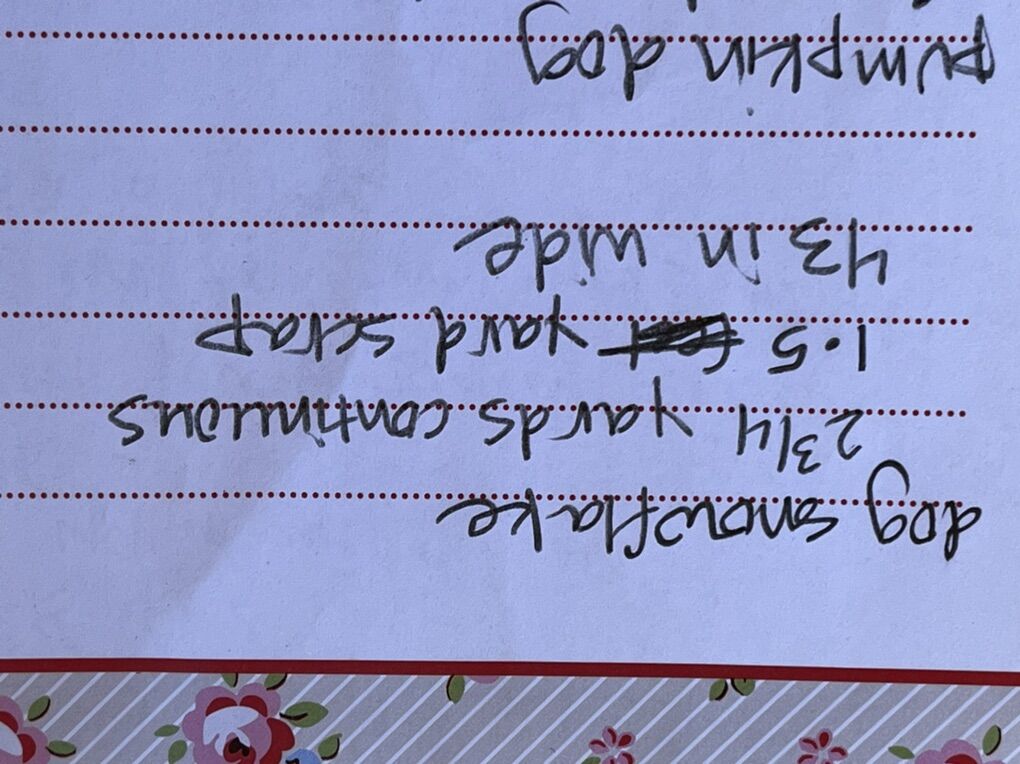 dog snowflake
2 3/4 yards continuous
1.5 yard scrap
43 in wide
pumpkin dog